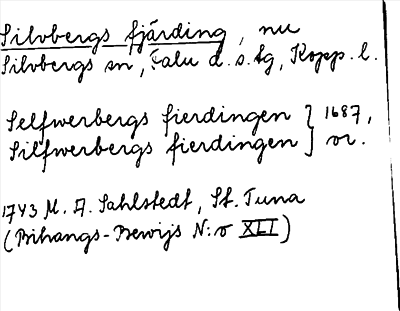 Silvbergs fjärding, nu
Silvbergs sn, Falu d.s.tg, Kopp. l.
Selfwerbergs fierdingen } 1687,
Silfwerbergs fierdingen } or.
1743 M. A. Sahlstedt, St. Tuna
(Bihangs-Bewijs N:o XLI)